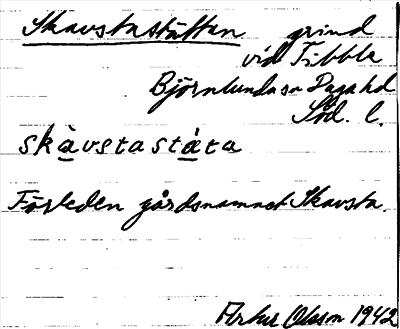 Skavstastättan grind
vid Tibbla
Björnlunda sn Daga hd
Söd. l.
skàvstastáta
Förleden gårdsnamnet Skavsta.
Artur Olsson 1942